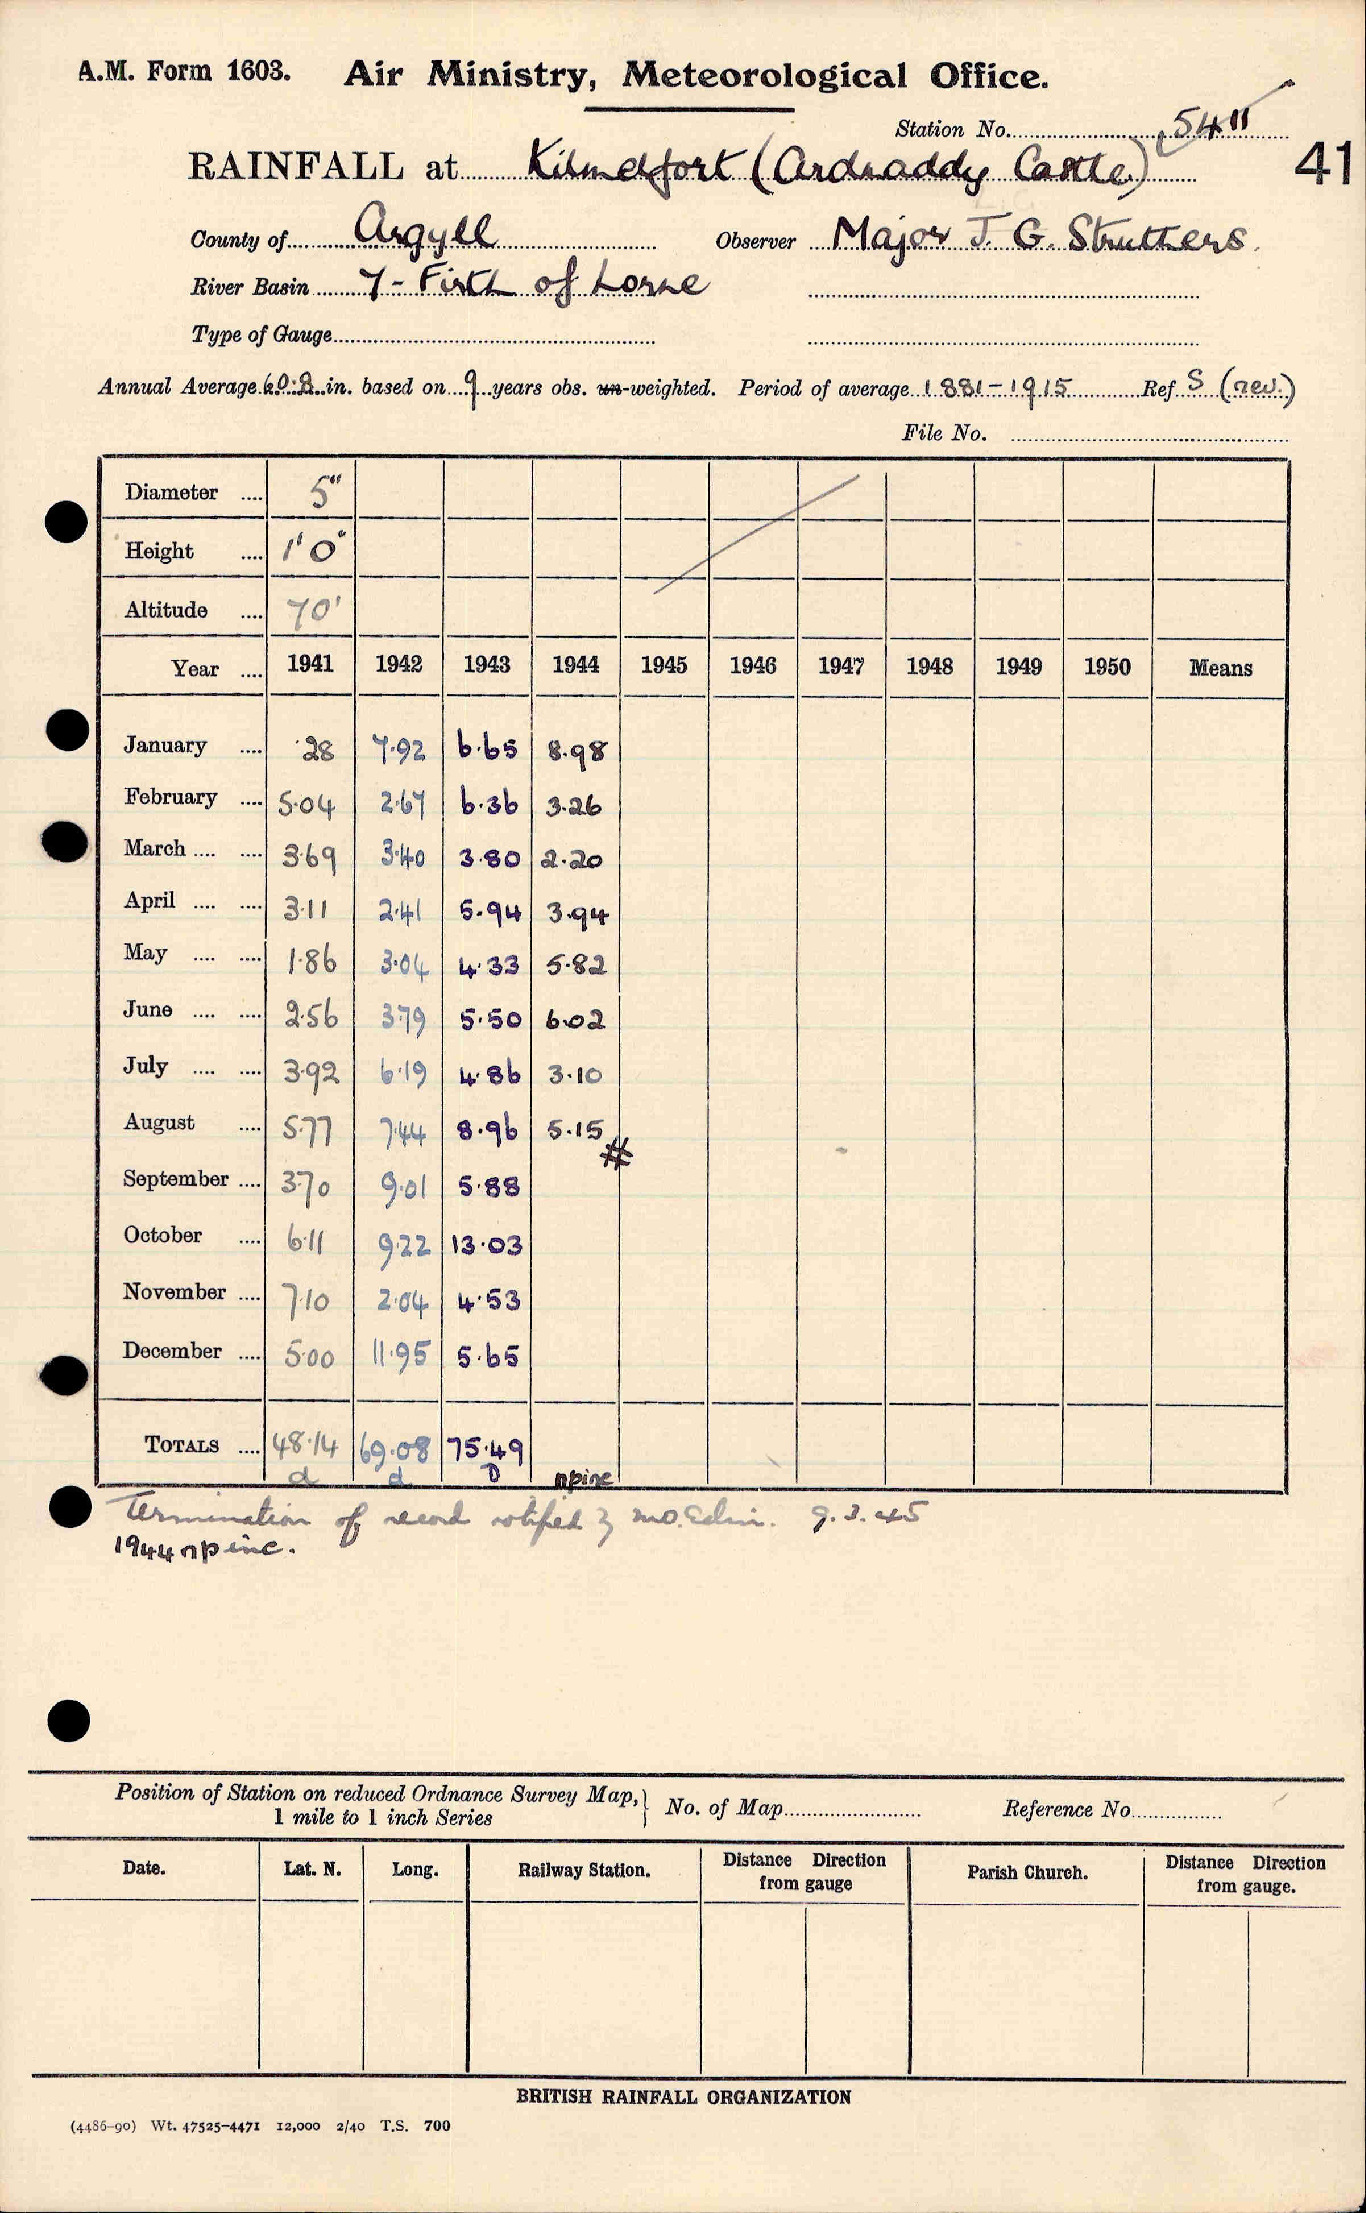 A.M. Form 1603. Air Ministry, Meteorological Office.
Station No. 5411
RAINFALL at Kilmelfort (Ardnaddy Castle) 41
County of Argyll Observer Major J. G. Struthers.
River Basin 7 - Firth of Lorne
Type of Gauge
Annual Average 60.8 in. based on 9 years obs. un-weighted. Period of average 1881-1915 Ref S (rev.)
File No.
Diameter .... 5"
Height .... 1' 0"
Altitude .... 70'
Year .... 1941 1942 1943 1944 1945 1946 1947 1948 1949 1950 Means
January .... .28 7.92 6.65 8.98
February .... 5.04 2.67 6.36 3.26
March .... .... 3.69 3.40 3.80 2.20
April .... .... 3.11 2.41 5.94 3.94
May .... .... 1.86 3.04 4.33 5.82
June .... .... 2.56 3.79 5.50 6.02
July .... .... 3.92 6.19 4.86 3.10
August .... 5.77 7.44 8.96 5.15
#
September .... 3.70 9.01 5.88
October .... 6.11 9.22 13.03
November .... 7.10 2.04 4.53
December .... 5.00 11.95 5.65
TOTALS .... 48.14 69.08 75.49
d d D npinc
Termination of record notified by M.O. Edin. 9.3.45
1944 np inc.
Position of Station on reduced Ordnance Survey Map,
1 mile to 1 inch Series } No. of Map Reference No.
Date. Lat. N. Long. Railway Station. Distance Direction from gauge Parish Church. Distance Direction from gauge.
BRITISH RAINFALL ORGANIZATION
(4486-90) Wt. 47525-4471 12,000 2/40 T.S. 700